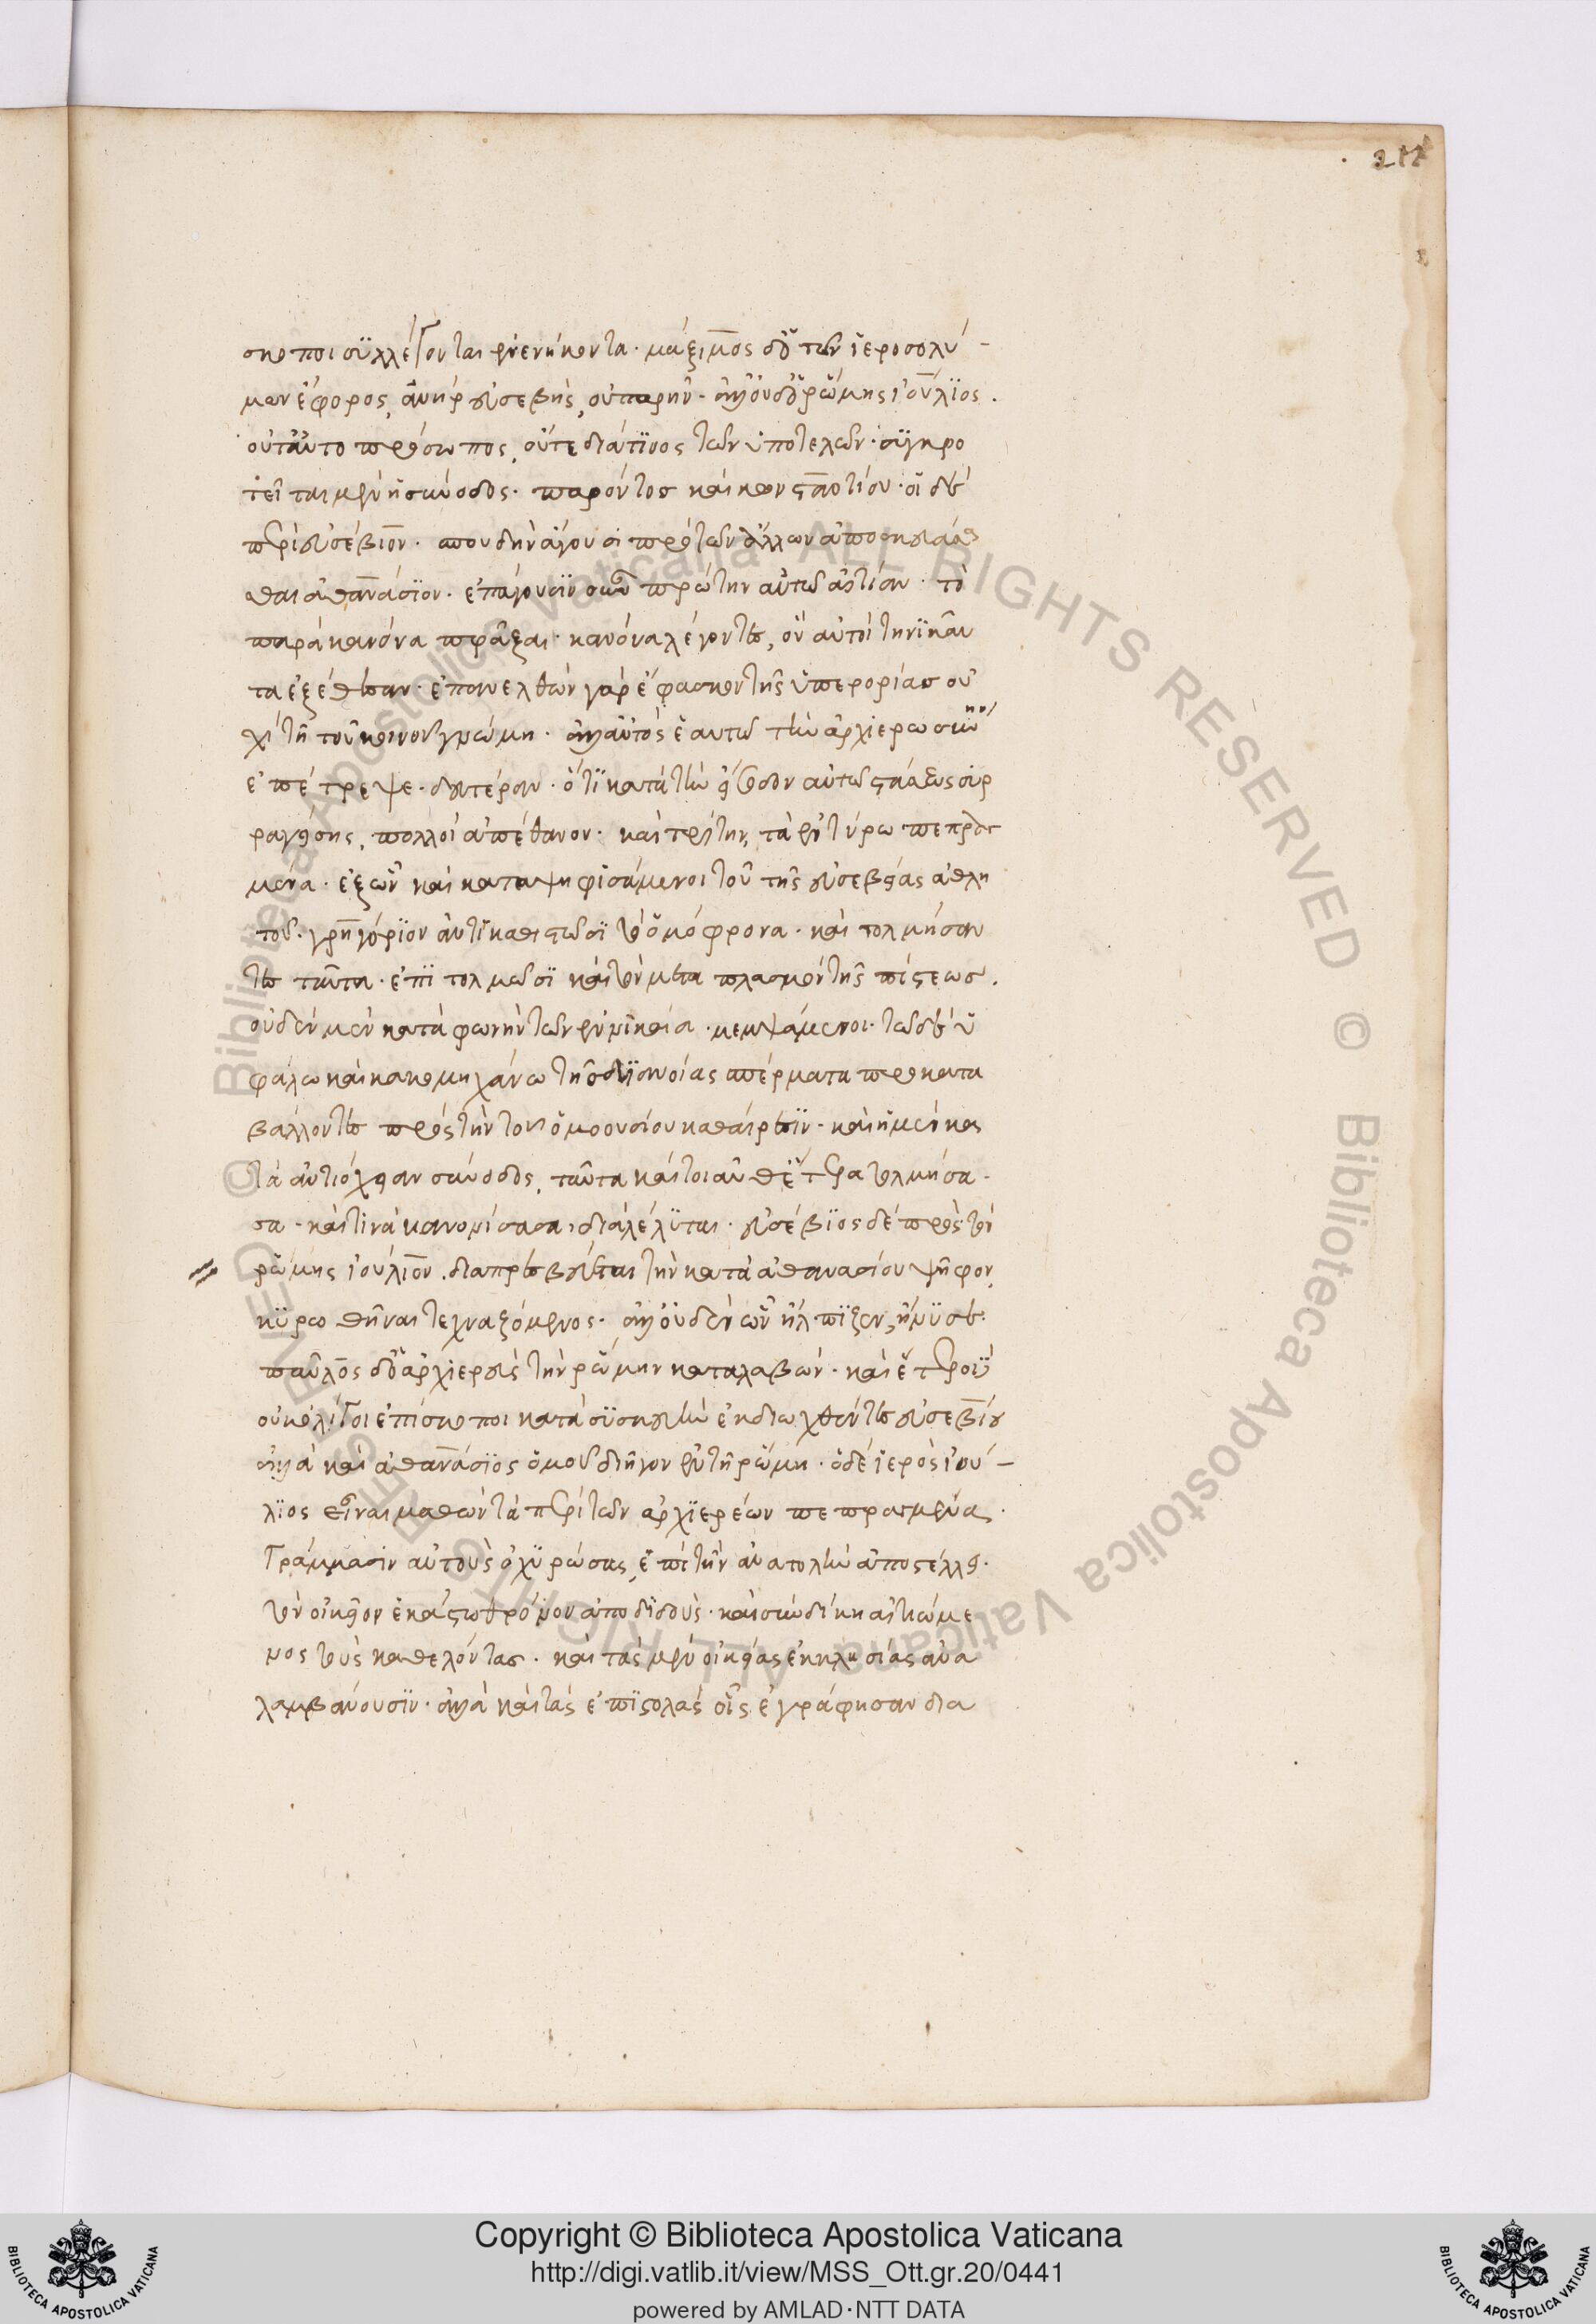 217
σκοποι συλλέγονται ἐνενήκοντα. μάξιμος δὲ ὁ τῶν ἱεροσολύ-
μων ἔφορος, ἀνὴρ εὐσεβὴς, οὐ παρῆν. ἀλλ' οὐδ' ὁ ῥώμης ἰούλιος.
οὔτ' αὐτοπρόσωπος, οὔτε διά τινος τῶν ὑποτελῶν. συγκρο
τεῖται μὲν ἡ σύνοδος. παρόντος καὶ κωνσταντίου. οἱ δὲ
περὶ εὐσέβιον. σπουδὴν ἄγουσι πρὸ τῶν ἄλλων ἀποσκευάσα
σθαι ἀθανάσιον. ἐπάγουσιν οὖν πρώτην αὐτῷ αἰτίαν. τὸ
παρὰ κανόνα πρᾶξαι. κανόνα λέγοντες, ὃν αὐτοὶ τηνικαῦ
τα ἐξέθεσαν. ἐπανελθὼν γὰρ ἔφασκον τῆς ὑπερορίας οὐ
χὶ τῇ τοῦ κοινοῦ γνώμῃ. ἀλλ' αὐτὸς ἑαυτῷ τὴν ἀρχιερωσύνην
ἐπέτρεψε. δευτέραν. ὅτι κατὰ τὴν εἴσοδον αὐτοῦ στάσεως συρ
ραγείσης, πολλοὶ ἀπέθανον. καὶ τρίτην, τὰ ἐν τύρῳ πεπραγ
μένα. ἐξ ὧν καὶ καταψηφισάμενοι τοῦ τῆς εὐσεβείας ἀθλη
τοῦ. γρηγόριον ἀντικαθιστῶσι τὸν ὁμόφρονα. καὶ τολμήσαν
τες ταῦτα. ἐπιτολμῶσι καὶ τὸν μεταπλασμὸν τῆς πίστεως.
οὐδὲν μὲν κατὰ φωνὴν τῶν ἐν νικαίᾳ. μεμψάμενοι. τῷ δὲ ὑ
φάλῳ καὶ κακομηχάνῳ τῆς διανοίας σπέρματα προκατα
βάλλοντες πρὸς τὴν τοῦ ὁμοουσίου καθαίρεσιν. καὶ ἡ μὲν κα
τὰ ἀντιόχειαν σύνοδος, ταῦτα καὶ τοιαῦθ' ἕτερα τολμήσα-
σα. καί τινα κανονίσασα, διαλέλυται. εὐσέβιος δὲ πρὸς τὸν
ῥώμης ἰούλιον. διαπρεσβεύεται τὴν κατὰ ἀθανασίου ψῆφον
κυρωθῆναι τεχναζόμενος. ἀλλ' οὐδὲν ὧν ἤλπιζεν, ἤνυσε.
παῦλος δὲ ὁ ἀρχιερεὺς τὴν ῥώμην καταλαβὼν. καὶ ἕτεροι δ'
οὐκ ὀλίγοι ἐπίσκοποι κατὰ συσκευὴν ἐκδιωχθέντες εὐσεβίου
ἀλλὰ καὶ ἀθανάσιος ὁμοῦ διῆγον ἐν τῇ ῥώμῃ. ὁ δὲ ἱερὸς ἰού-
λιος εἶναι μαθὼν τὰ περὶ τῶν ἀρχιερέων πεπραγμένα.
γράμμασιν αὐτοὺς ὀχυρώσας, ἐπὶ τὴν ἀνατολὴν ἀποστέλλει.
τὸν οἰκεῖον ἑκάστῳ θρόνον ἀποδιδοὺς. καὶ σὺν δίκῃ αἰτιώμε
νος τοὺς καθελόντας. καὶ τὰς μὲν οἰκείας ἐκκλησίας ἀνα
λαμβάνουσιν. ἀλλὰ καὶ τὰς ἐπιστολὰς οἷς ἐγράφησαν δια
Copyright © Biblioteca Apostolica Vaticana
http://digi.vatlib.it/view/MSS_Ott.gr.20/0441
powered by AMLAD·NTT DATA